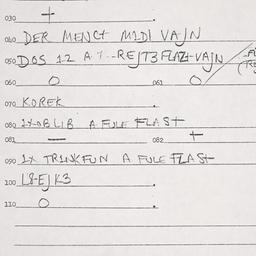 030 +
040 DER MENCT MIDI VAJN
050 DOS 12 A T--REJT3 FLAZT-VAJN
060 O 061 O
070 KOREK
080 1X-OBLIB A FULE FLAST
081 — 082 +
090 1X TRINKFUN A FULE FLAST
100 L8-EJK3
110 O